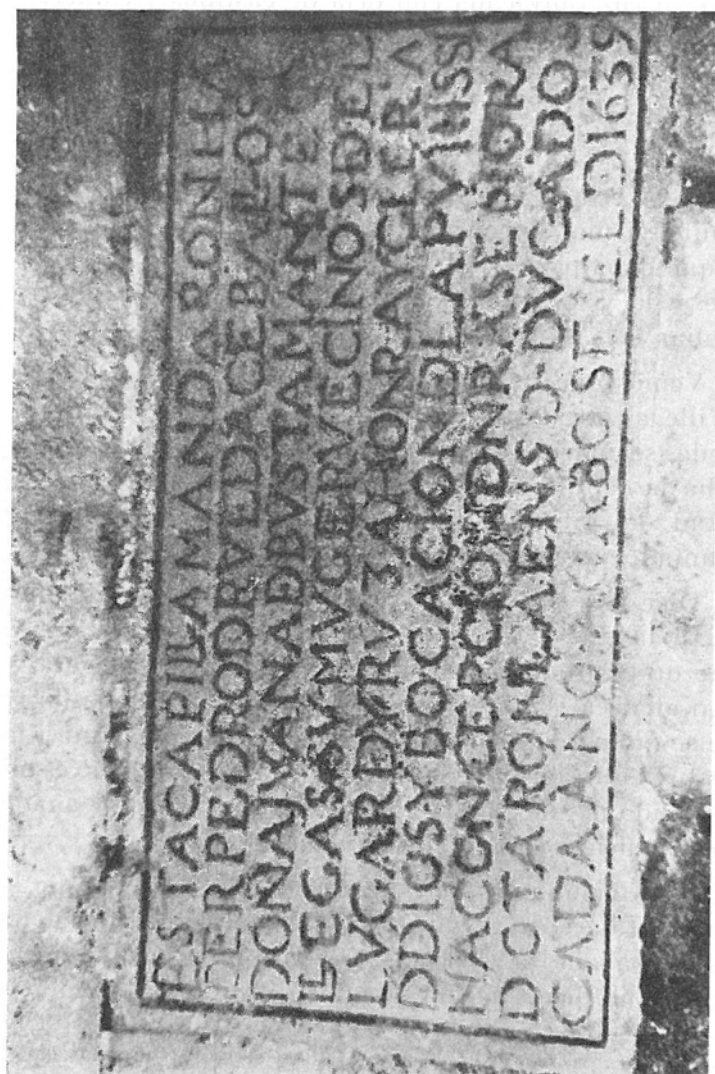 ESTA CAPILLA MANDARON HA
DER PEDRO D RVEDA CEBALLOS
DONA JVANA D BVSTAMANTE
LLEGAS SV MVGER VECINOS DEL
LVGAR D Y RV3 A HONRA Y
D DIOS Y BOCACION D LA PVRISSI
NA CONCEPCION D NRA SEÑORA
DOTARONLA EN DVCADOS
CADA ANO ACABOSE EL D 1639